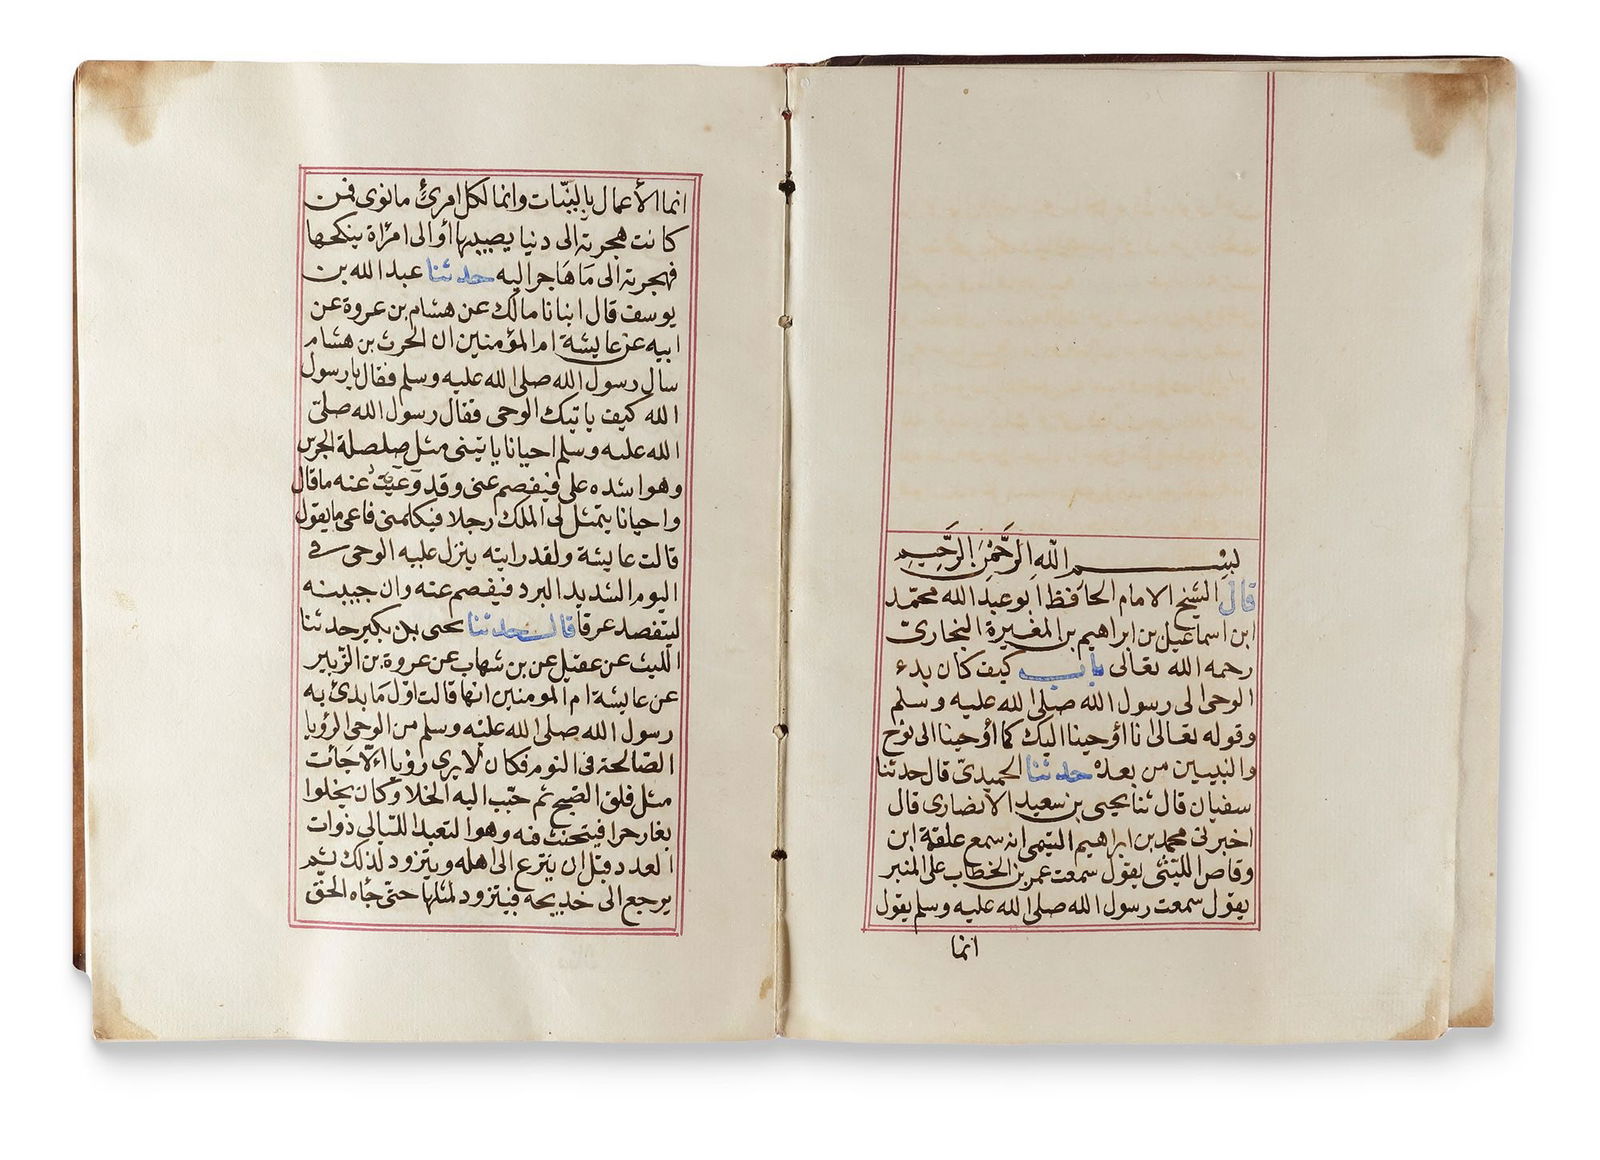 بسم الله الرَّحْمٰنِ الرَّحِيمِ
قال الشيخ الامام الحافظ ابو عبد الله محمّد
ابن اسماعيل بن ابراهيم بن المغيرة البخاريّ
رحمه الله تعالى باب كيف كان بدء
الوحى الى رسول الله صلى الله عليه وسلم
وقوله تعالى انا أوحينا اليك كما أوحينا الى نوح
والنبيين من بعده حدثنا الحميديّ قال حدثنا
سفيان قال ثنا يحيى بن سعيد الانصارى قال
اخبرنى محمد بن ابراهيم التيمى انه سمع علقمة ابن
وقاص الليثى يقول سمعت عمر بن الخطاب على المنبر
يقول سمعت رسول الله صلى الله عليه وسلم يقول
انما
انما الأعمال بالنيّات وانما لكل امرئ مانوى فمن
كانت هجرته الى دنيا يصيبها أو الى امرأة ينكحها
فهجرته الى مَا هَاجر اليه حدثنا عبد الله بن
يوسف قال انبانا مالك عن هشام بن عروة عن
ابيه عن عايشة ام المؤمنين ان الحرث بن هشام
سال رسول الله صلى الله عليه وسلم فقال يارسول
الله كيف ياتيك الوحى فقال رسول الله صلىّ
الله عليه وسلم احيانا ياتينى مثل صلصلة الجرس
وهو اشده على فيفصم عنى وقد وَعَيْتُ عنه ماقال
واحيانا يتمثل لى الملك رجلا فيكلمنى فاعى مايقول
قالت عايشة ولقد رايته ينزل عليه الوحى فى
اليوم الشديد البرد فيفصم عنه وان جبينه
ليتفصد عرقا قال حدثنا يحى بن بكير حدثنا
الليث عن عقيل عن بن شهاب عن عروة بن الزّبير
عن عايشة ام المومنين انها قالت اوّل مَا بدئ به
رسول الله صلى الله عليْه وسلم من الوحى الرؤيا
الصّالحة فى النوم فكان لايرى رؤيا الّا جَائت
مثل فلق الصّبح ثم حبّب اليه الخلا وكان يخلوا
بغار حرا فيتحنث فيه وهو التعبد اللّيالى ذوات
العدد قبل ان ينزع الى اهله ويتزود لذلك ثم
يرجع الى خديجه فيتزود لمثلها حتى جاه الحق